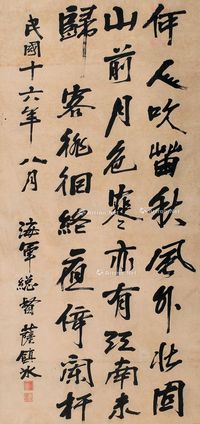 何人吹笛秋風外北固
山前月色寒亦有江南未
歸客徘徊終夜倚闌杆
民國十六年八月
海軍總督薩鎮冰